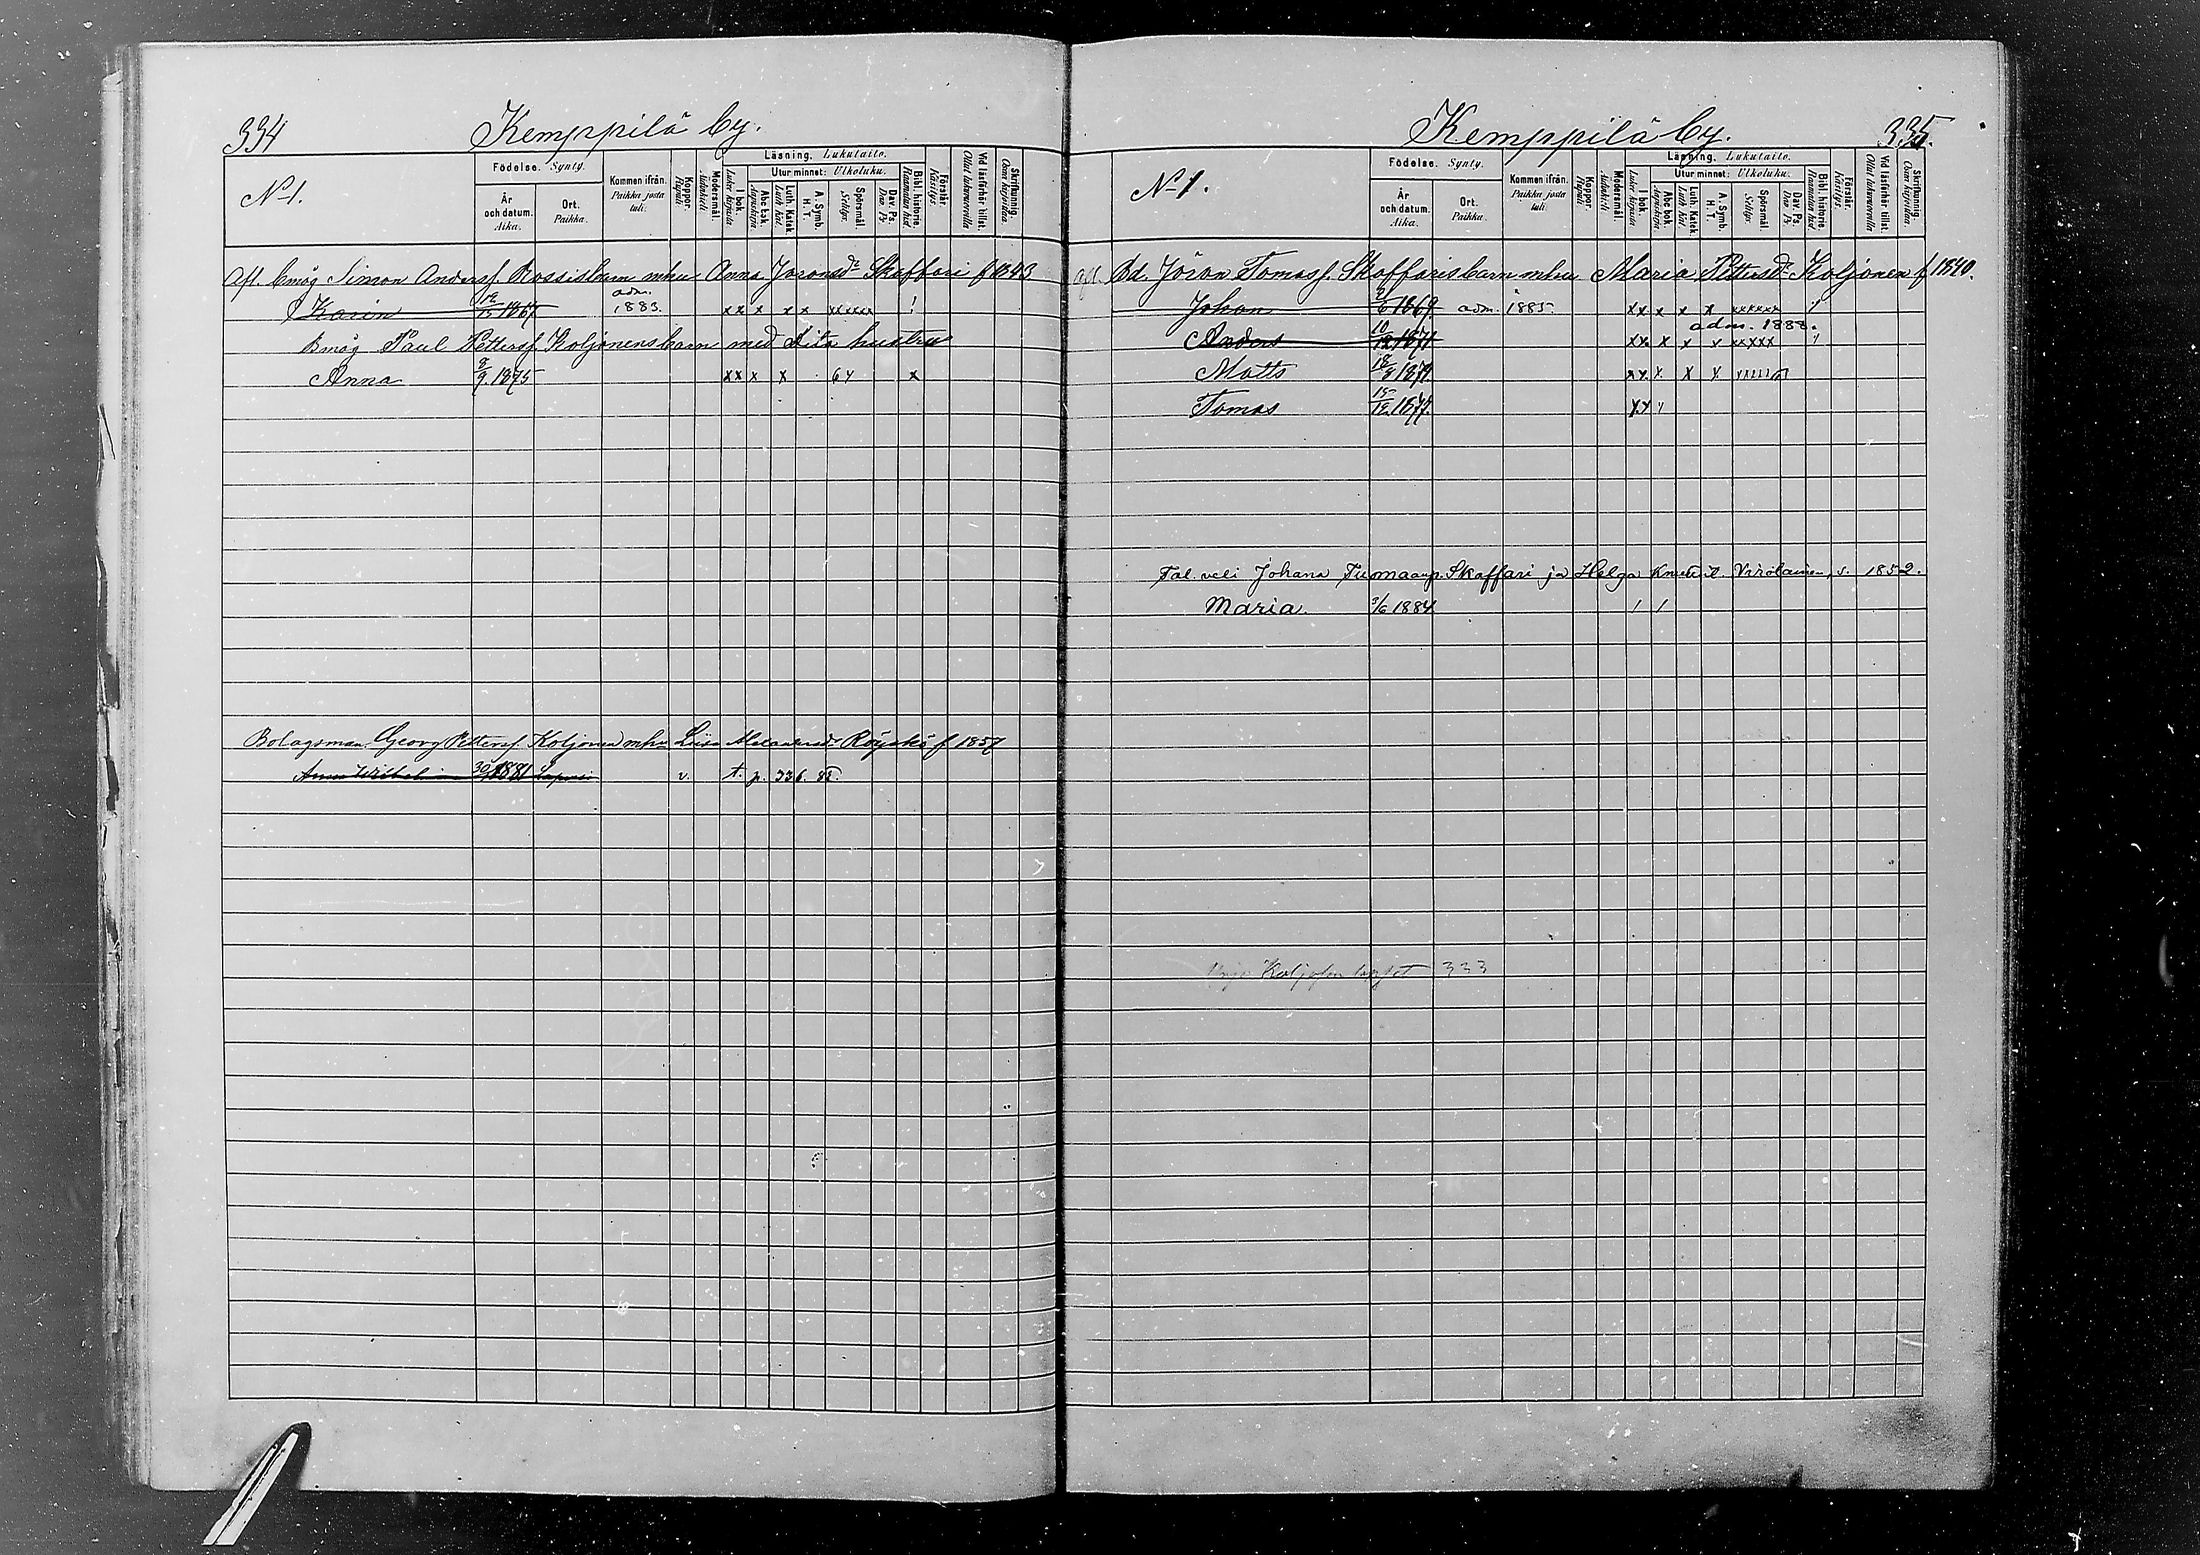 334 Kemppilä by.
No 1.
Födelse. Synty.
År och datum. Aika.
Ort. Paikka.
Kommen ifrån. Paikka josta tuli.
Koppor. Rupuli
Modersmål Äidinkieli
Läsning. Lukutaito.
I bok. Lukee kirjasta
Utur minnet: Ulkoluku.
Abc bok. Aapiskirja
Luth. Katek. Luth. Kat.
A. Symb. H. T.
Spörsmål. Selitys.
Dav. Ps. Dav. Ps.
Bibl. historie. Raamatun hist.
Förstår. Käsitys.
Vid läsförhör tillst. Ollut lukuvuorolla
Skrifkunnig. Osaa kirjoittaa.
Afl. Bmåg Simon Andersf. Rossis barn mhu Anna Joransdr Skaffari f 1843
Karin 1867 adm. 1883. x x x x x x x x x x !
Bmåg Paul Pettersf. Koljonens barn med dito hustru
Anna 8/9 1875 x x x x 6 y x
Bolagsman Georg Pettersf. Koljonen mhu Lisa f 1857
Anna 1881 v. t. p. 336. 85.
Kemppilä by. 335.
No 1.
Födelse. Synty.
År och datum. Aika.
Ort. Paikka.
Kommen ifrån. Paikka josta tuli.
Koppor. Rupuli
Modersmål Äidinkieli
Läsning. Lukutaito.
I bok. Lukee kirjasta
Utur minnet: Ulkoluku.
Abc bok. Aapiskirja
Luth. Katek. Luth. Kat.
A. Symb. H. T.
Spörsmål. Selitys.
Dav. Ps. Dav. Ps.
Bibl. historie. Raamatun hist
Förstår. Käsitys.
Vid läsförhör tillst. Ollut lukuvuorolla
Skrifkunnig. Osaa kirjoittaa.
afl. Bd. Jöran Tomasf. Skaffaris barn mhu Maria Pettersdr Koljonen f 1840.
Johan 2/6 1869. adm. 1885. x x x x x xxxxxx
adm. 1888.
Anders 10/12 1871 x x x x x xxxxx
Matts 1874. x x x x x
Tomas 15/12 1877.
Tal. veli Johana Tuomaanp. Skaffari ja Helga Virolainen, s. 1852.
Maria 3/6 1884 / /
Koljosen 333